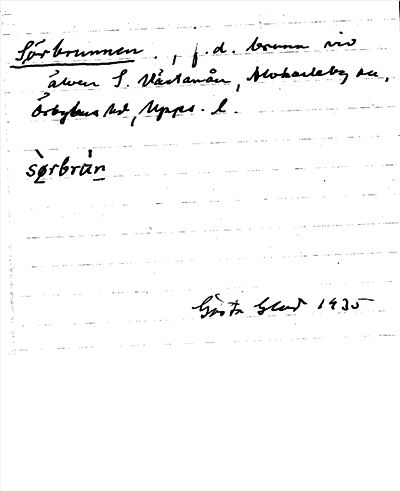 Sörbrunnen., f.d. brunn vid
älven S. Västanån, Älvkarleby sn,
Örbyhus hd, Upps. l.
sø̀rbrùn
Gösta Glad 1935